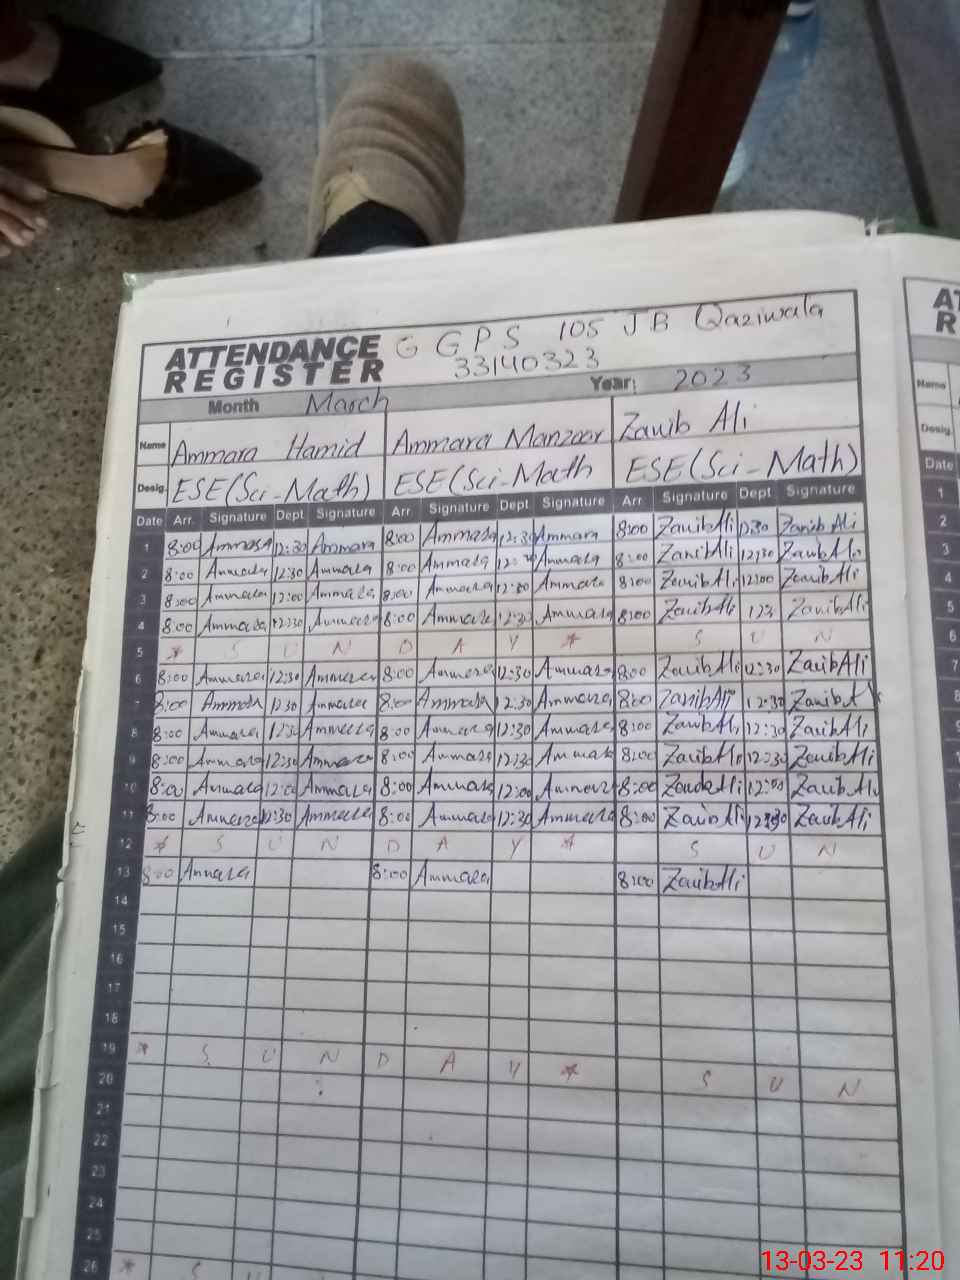 ATTENDANCE REGISTER
G GPS 105 JB Qaziwala
33140323
Month March Year: 2023
Name Ammara Hamid Ammara Manzoor Zanib Ali
Desig. ESE(Sci-Math) ESE(Sci-Math ESE(Sci-Math)
Date Arr. Signature Dept Signature Arr. Signature Dept Signature Arr. Signature Dept Signature
1 8:00 Ammara 12:30 Ammara 8:00 Ammara 12:30 Ammara 8:00 Zanib Ali 12:30 Zanib Ali
2 8:00 Ammara 12:30 Ammara 8:00 Ammara 12:30 Ammara 8:00 Zanib Ali 12:30 Zanib Ali
3 8:00 Ammara 12:00 Ammara 8:00 Ammara 12:00 Ammara 8:00 Zanib Ali 12:00 Zanib Ali
4 8:00 Ammara 12:30 Ammara 8:00 Ammara 12:30 Ammara 8:00 Zanib Ali Zanib Ali
5 * S U N D A Y * S U N
6 8:00 Ammara 12:30 Ammara 8:00 Ammara 12:30 Ammara 8:00 Zanib Ali 12:30 Zanib Ali
7 8:00 Ammara 12:30 Ammara 8:00 Ammara 12:30 Ammara 8:00 Zanib Ali 12:30 Zanib Ali
8 8:00 Ammara 12:30 Ammara 8:00 Ammara 12:30 Ammara 8:00 Zanib Ali 12:30 Zanib Ali
9 8:00 Ammara 12:30 Ammara 8:00 Ammara 12:30 Ammara 8:00 Zanib Ali 12:30 Zanib Ali
10 8:00 Ammara 12:00 Ammara 8:00 Ammara 12:00 Ammara 8:00 Zanib Ali 12:00 Zanib Ali
11 8:00 Ammara 12:30 Ammara 8:00 Ammara 12:30 Ammara 8:00 Zanib Ali 12:30 Zanib Ali
12 * S U N D A Y * S U N
13 8:00 Ammara 8:00 Ammara 8:00 Zanib Ali
14
15
16
17
18
19 * S U N D A Y * S U N
20
21
22
23
24
25
26 * S U
Name
Desig.
Date
1
2
3
4
5
6
7
8
9
13-03-23 11:20